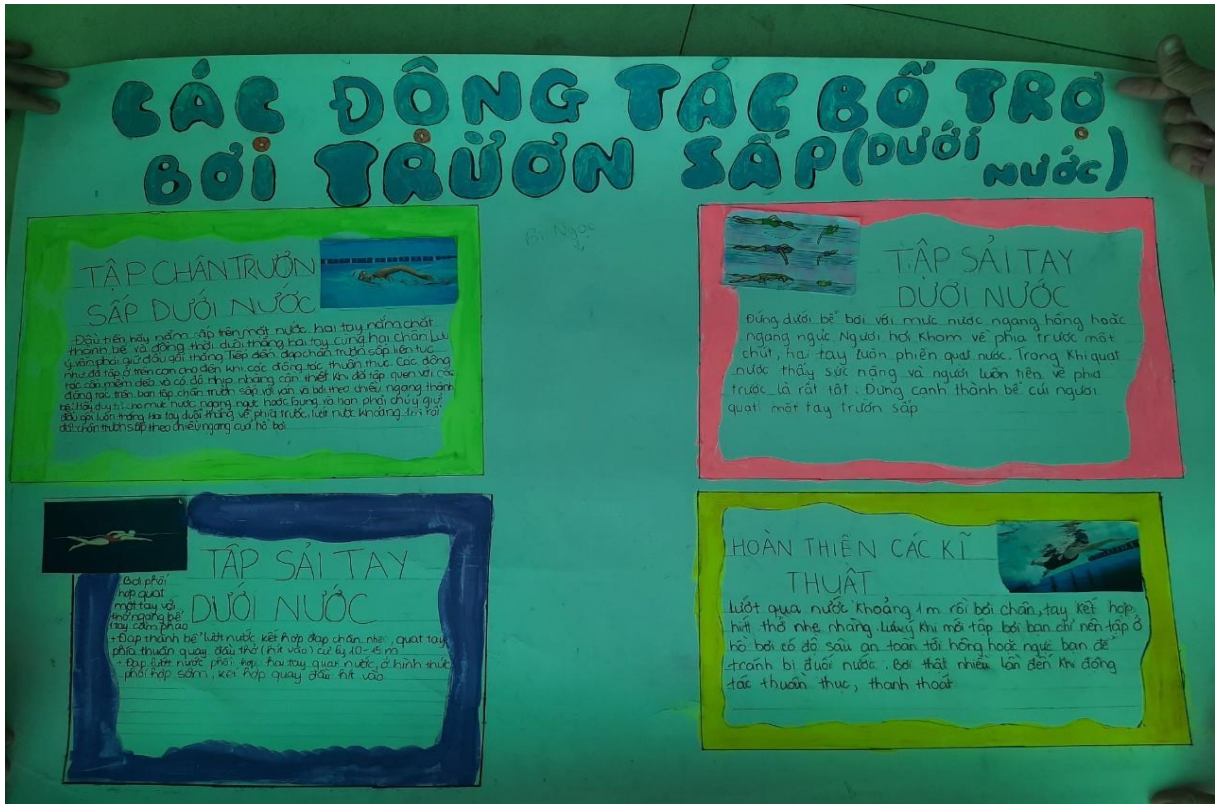 CÁC ĐỘNG TÁC BỔ TRỢ
BƠI TRƯỜN SẤP (DƯỚI NƯỚC)
Bi Ngọc
TẬP CHÂN TRƯỜN
SẤP DƯỚI NƯỚC
- Đầu tiên hãy nằm sấp trên mặt nước, hai tay nắm chặt
thành bể và đồng thời duỗi thẳng hai tay cùng hai chân. Lưu
ý vẫn phải giữ đầu gối thẳng. Tiếp đến đạp chân trườn sấp liên tục
như đã tập ở trên cạn cho đến khi các động tác thuần thục. Các động
tác cần mềm dẻo và có độ nhịp nhàng cần thiết. Khi đã tập quen với các
động tác trên bạn tập chân trườn sấp với ván và bơi theo chiều ngang thành
bể. Hãy duy trì cho mực nước ngang ngực hoặc bụng và bạn phải chú ý giữ
đầu gối luôn thẳng, hai tay duỗi thẳng về phía trước, lướt nước khoảng 1m rồi
đạp chân trườn sấp theo chiều ngang của hồ bơi.
TẬP SẢI TAY
DƯỚI NƯỚC
Đứng dưới bể bơi với mực nước ngang hông hoặc
ngang ngực. Người hơi khom về phía trước một
chút, hai tay luôn phiên quạt nước. Trong khi quạt
nước thấy sức nặng và người luôn tiến về phía
trước là rất tốt. Đứng cạnh thành bể cúi người
quạt một tay trườn sấp
TẬP SẢI TAY
DƯỚI NƯỚC
Bơi phối
hợp quạt
một tay với
thở ngang bể
tay cầm phao
+ Đạp thành bể lướt nước kết hợp đạp chân nhẹ, quạt tay
phía thuận quay đầu thở (hít vào) cự ly 10-15m
+ Đạp lướt nước phối hợp hai tay quạt nước, ở hình thức
phối hợp sớm, kết hợp quay đầu hít vào.
HOÀN THIỆN CÁC KĨ
THUẬT
Lướt qua nước khoảng 1m rồi bơi chân, tay kết hợp
hít thở nhẹ nhàng. Lưu ý khi mới tập bơi bạn chỉ nên tập ở
hồ bơi có độ sâu an toàn tới hông hoặc ngực bạn để
tránh bị đuối nước. Bơi thật nhiều lần đến khi động
tác thuần thục, thanh thoát